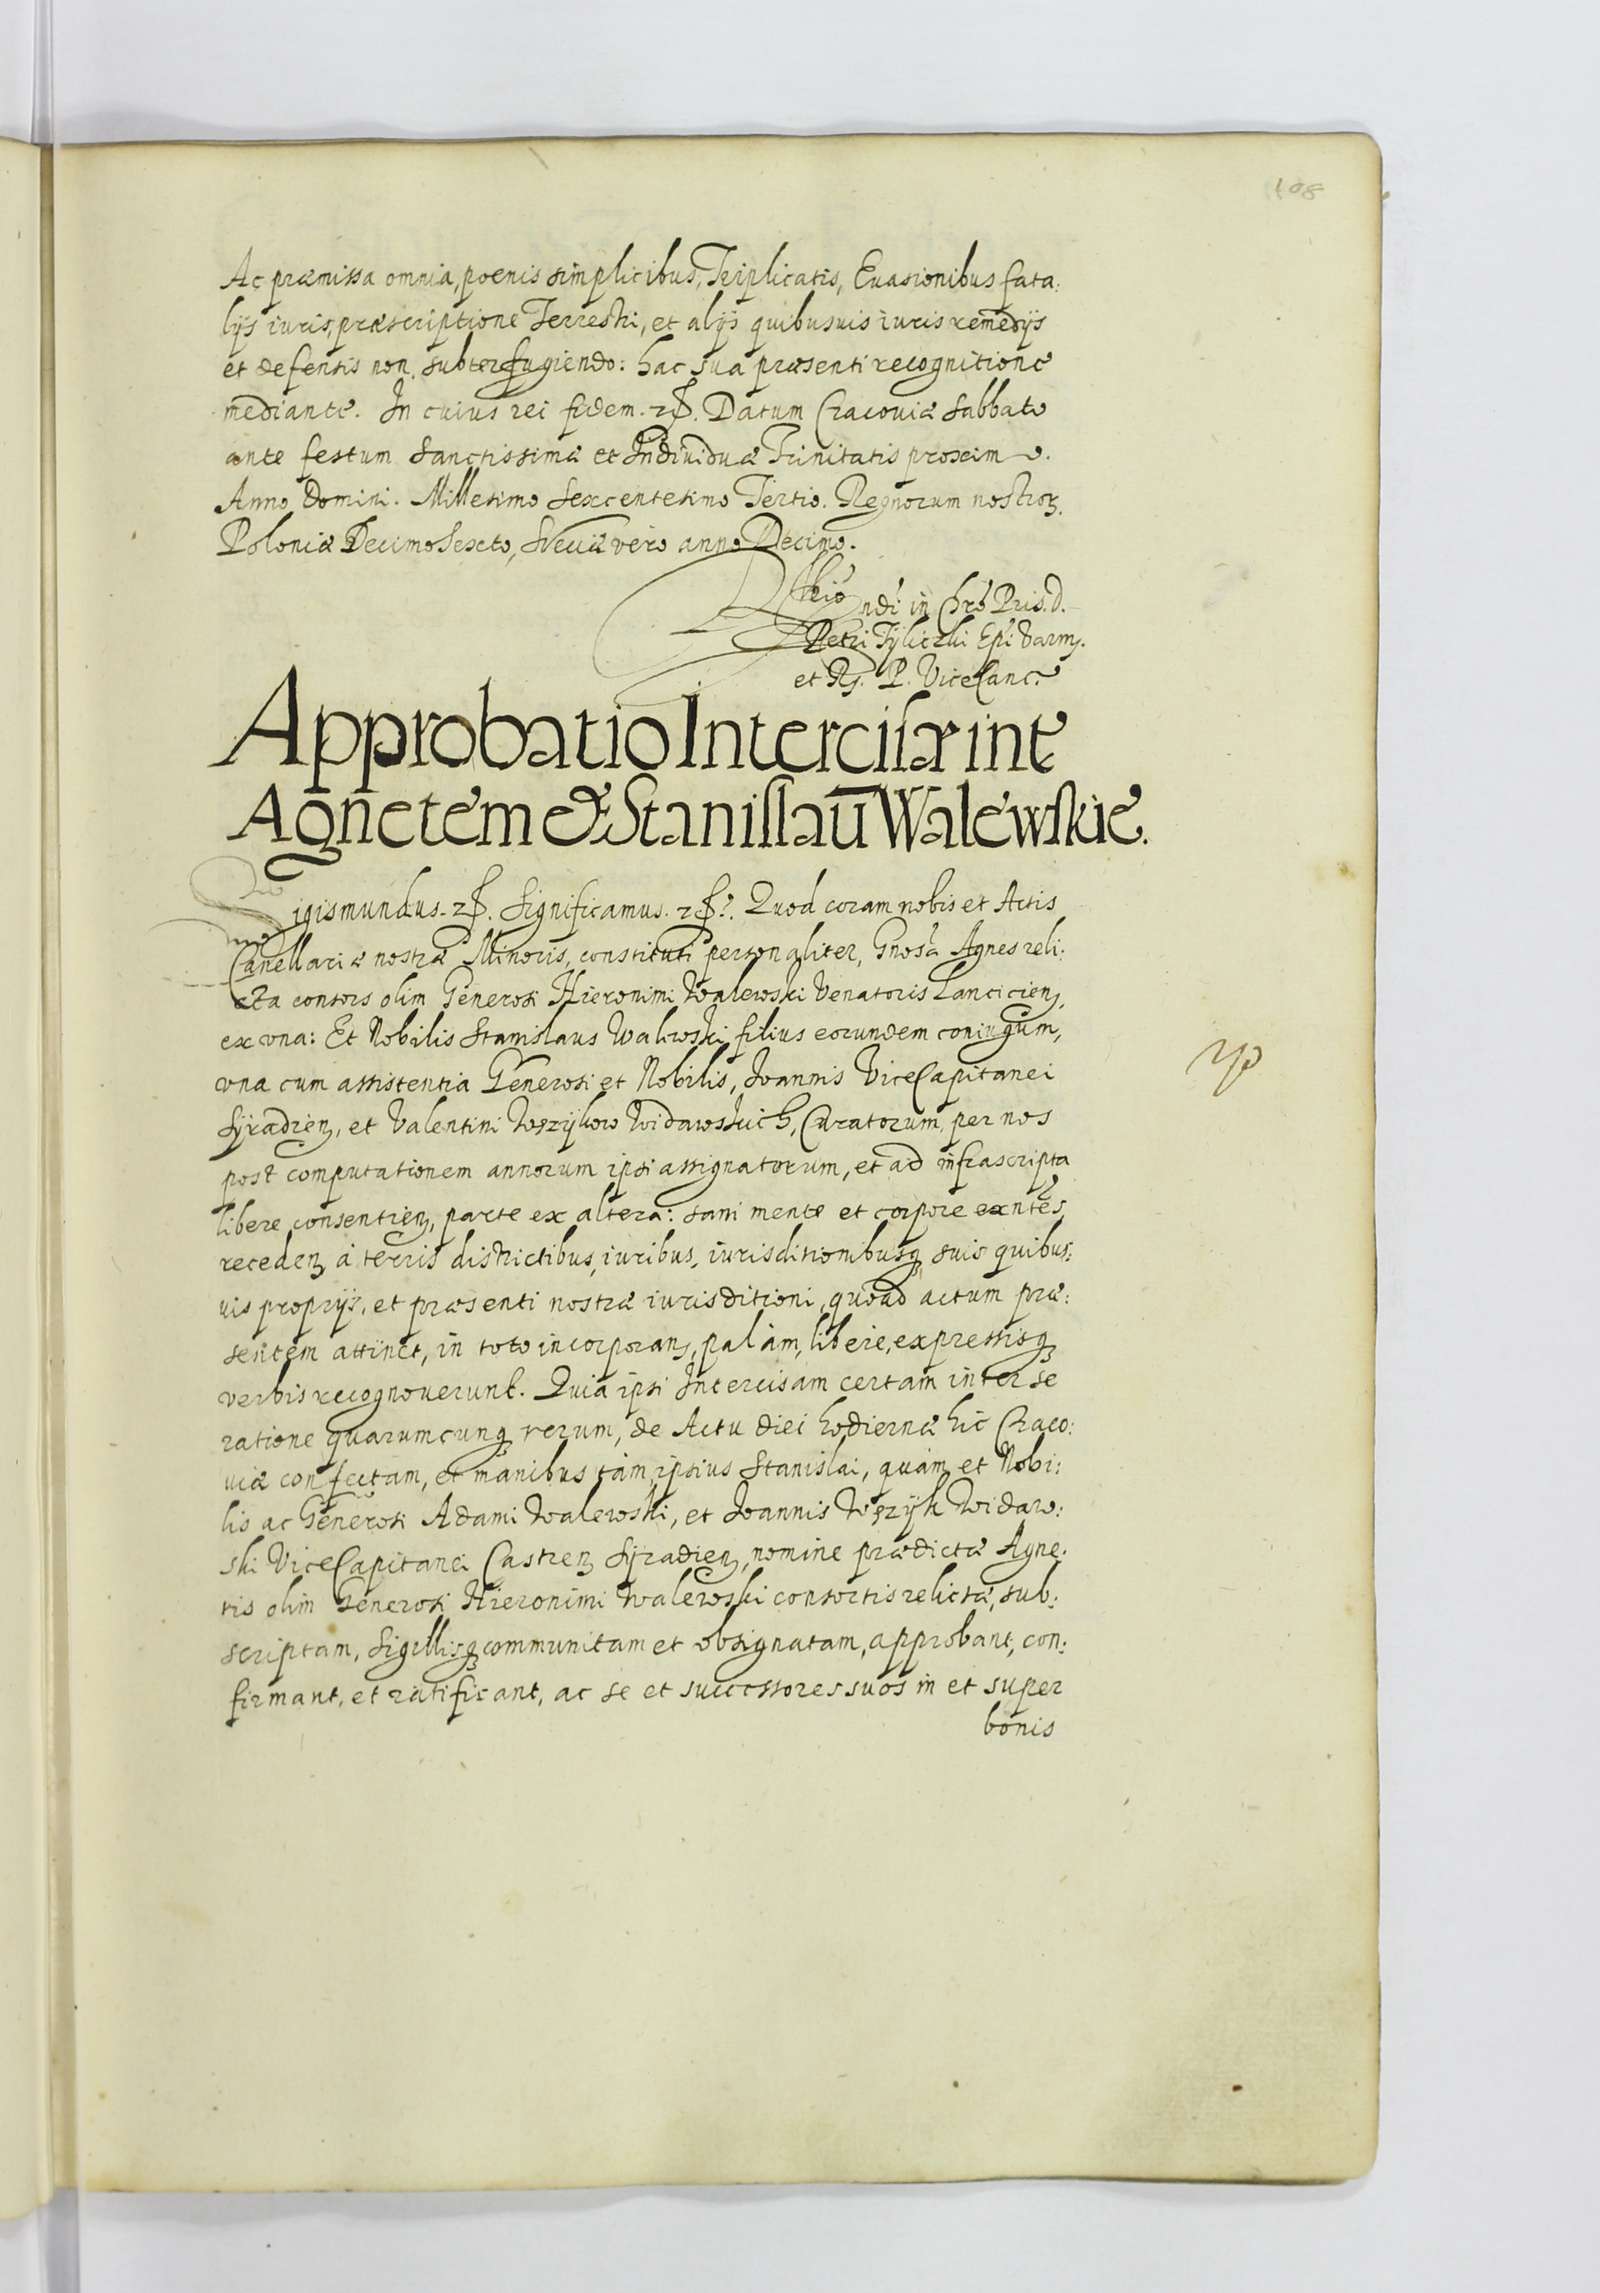 108
Ac præmissa omnia, poenis simplicibus, Triplicatis, Euasionibus fata:
lijs iuris, præscriptione Terrestri, et alijs quibusuis iuris remedijs
et defensis non subterfugiendo: hac sua præsenti recognitione
mediante. In cuius rei fidem. Datum Cracouiæ Sabbato
ante festum Sanctissimæ et Indiuiduæ Trinitatis proximo.
Anno Domini. Millesimo Sexcentesimo Tertio. Regnorum nostroꝝ.
Poloniæ Decimo Sexto, Sueciæ vero anno Decimo.
ndi in Chro Pris. d.
Petri Tyliczki Epi Varm.
et Rg. P. ViceCanc.
Approbatio Intercisæ inte
Agnetem & Stanislaū Walewskie.
Sigismundus. Significamus. Quod coram nobis et Actis
Cancellariæ nostræ Minoris, constituti personaliter, Gnosa Agnes reli:
cta consors olim Generosi Hieronimi Walewski Venatoris Lanciciens,
ex vna: Et Nobilis Stanislaus Walewski filius eorundem coniugum,
vna cum assistentia Generosi et Nobilis, Joannis ViceCapitanei
Syradien, et Valentini Wezykow Widawskich, Curatorum, per nos
post computationem annorum ipsi assignatorum, et ad infrascripta
libere consentien, parte ex altera: sani mente et corpore exntes,
receden à terris districtibus, iuribus, iurisditionibusq suis quibus:
uis proprijs, et præsenti nostræ iurisditioni, quoad actum præ:
sentem attinet, in toto incorporans, palàm, libere, expressisq
verbis recognouerunt. Quia ipsi Intercisam certam inter se
ratione quarumcunq rerum, de Actu diei hodiernæ hic Craco:
uiæ confectam, et manibus tàm ipsius Stanislai, quàm et Nobi:
lis ac Generosi Adami Walewski, et Joannis Wezyk Widaw:
ski ViceCapitanei Castren Syradien, nomine prædictæ Agne:
tis olim Generosi Hieronimi Walewski consortis relictæ, sub:
scriptam, Sigillisq communitam et obsignatam, approbant, con:
firmant, et ratificant, ac se et successores suos in et super
bonis